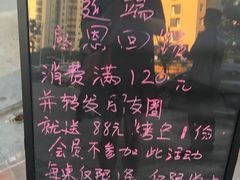 感恩回馈
消费满120元
并转发朋友圈
就送88元烤鱼1份
会员不参加此活动
每桌仅限1